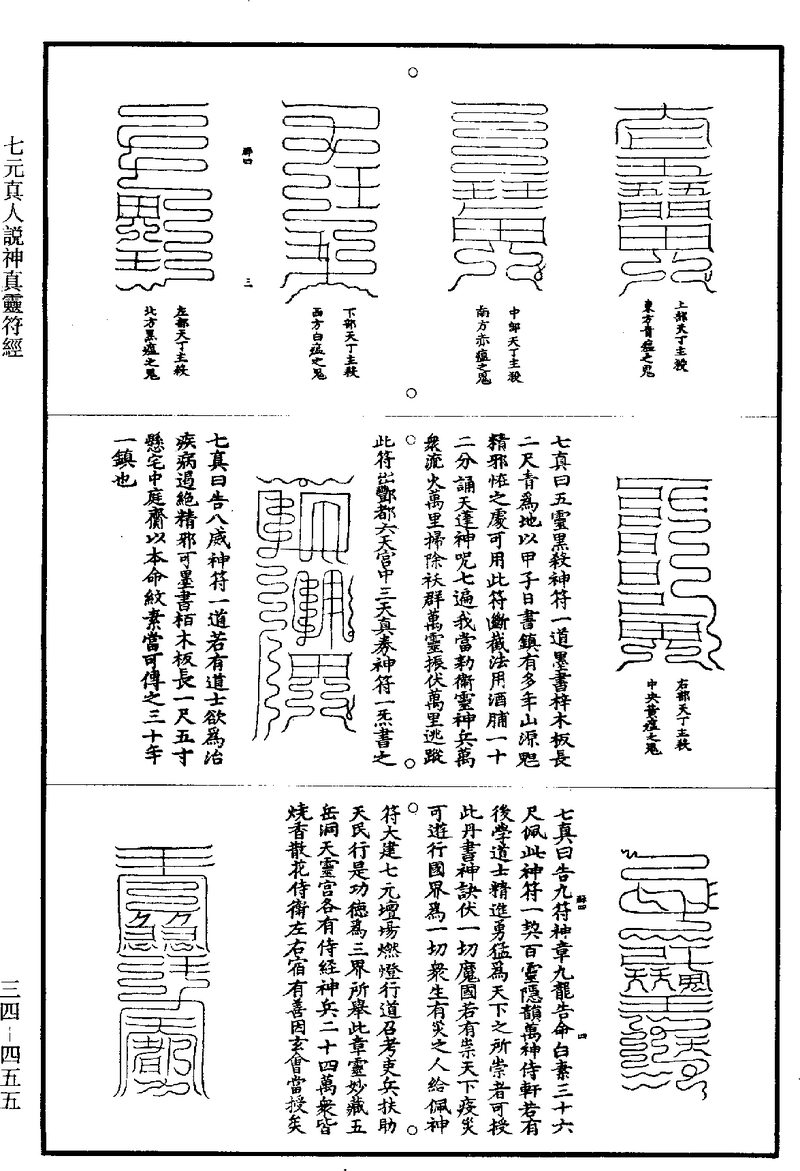 七元真人説神真靈符經
上部天丁主殺
東方青瘟之鬼
中部天丁主殺
南方赤瘟之鬼
下部天丁主殺
西方白瘟之鬼
左部天丁主殺
北方黑瘟之鬼
三
右部天丁主殺
中央黄瘟之鬼
七真曰五靈黑殺神符一道墨書梓木板長
二尺青爲地以甲子日書鎮有多年山源魍
精邪怪之處可用此符斷截法用酒脯一十
二分誦天蓬神呪七遍我當勑衛靈神兵萬
衆流火萬里掃除袄群萬靈振伏萬里逃蹤
此符出酆都六天宫中三天真奏神符一炁書之
七真曰告八威神符一道若有道士欲爲治
疾病遏絶精邪可墨書栢木板長一尺五寸
懸宅中庭齎以本命紋素當可傳之三十年
一鎮也
七真曰告九符神章九龍告命白素三十六
尺佩此神符一契百靈隱韻萬神侍軒若有
後學道士精進勇猛爲天下之所崇者可授
此丹書神訣伏一切魔國若有祟天下疫災
可遊行國界爲一切衆生有災之人給佩神
四
符大建七元壇場燃燈行道召考吏兵扶助
天民行是功德爲三界所舉此章靈妙藏五
岳洞天靈宫各有侍經神兵二十四萬衆皆
燒香散花侍衛左右宿有善因玄會當授矣
三四－四五五